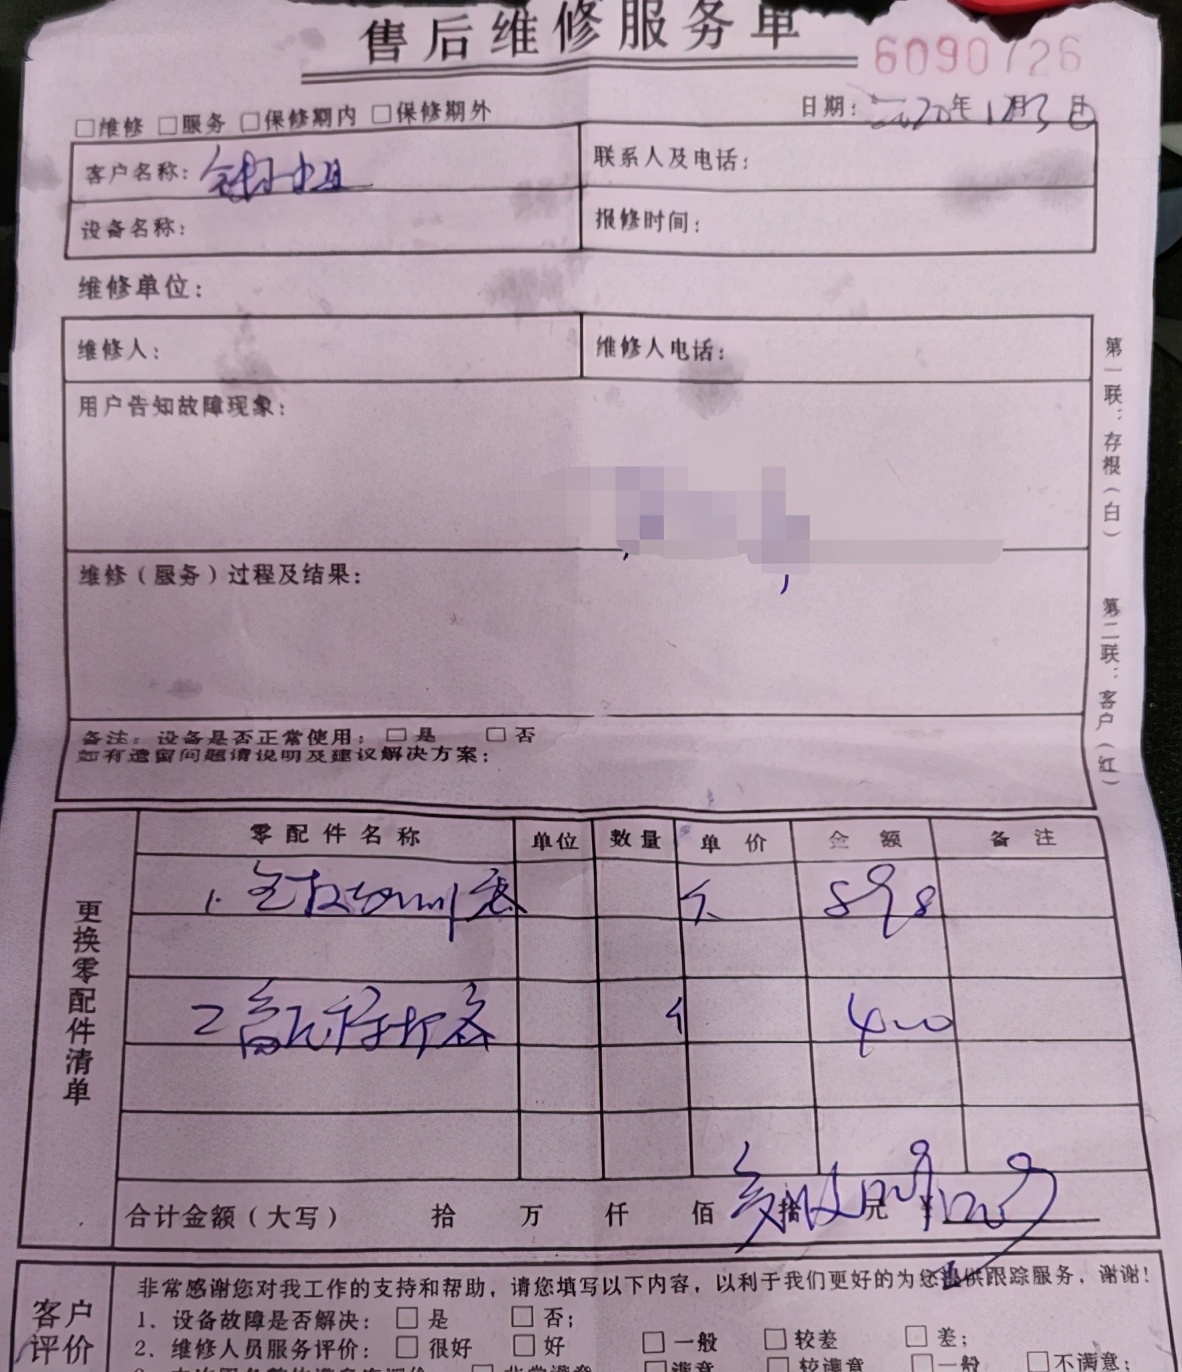 售后维修服务单
6090726
□维修 □服务 □保修期内 □保修期外
日期: 2020年12月3日
客户名称:
联系人及电话:
设备名称:
报修时间:
维修单位:
维修人:
维修人电话:
用户告知故障现象:
维修（服务）过程及结果:
备注: 设备是否正常使用: □是 □否
如有遗留问题请说明及建议解决方案:
第一联: 存根（白） 第二联: 客户（红）
更换零配件清单
零配件名称 单位 数量 单价 金额 备注
1. 898
2 400
合计金额（大写） 拾 万 仟 佰 拾 元 ¥
客户评价
非常感谢您对我工作的支持和帮助，请您填写以下内容，以利于我们更好的为您提供跟踪服务，谢谢!
1. 设备故障是否解决: □是 □否;
2. 维修人员服务评价: □很好 □好 □一般 □较差 □差;
□非常满意 □满意 □较满意 □一般 □不满意;